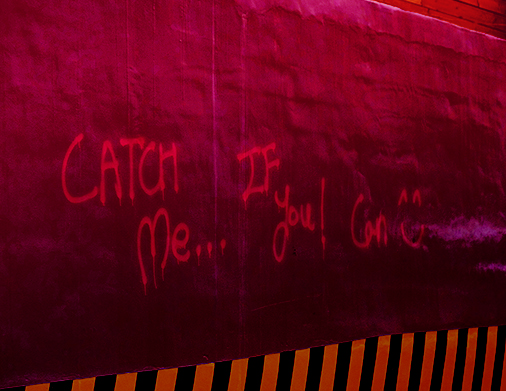 CATCH
Me...
IF
you!
Can